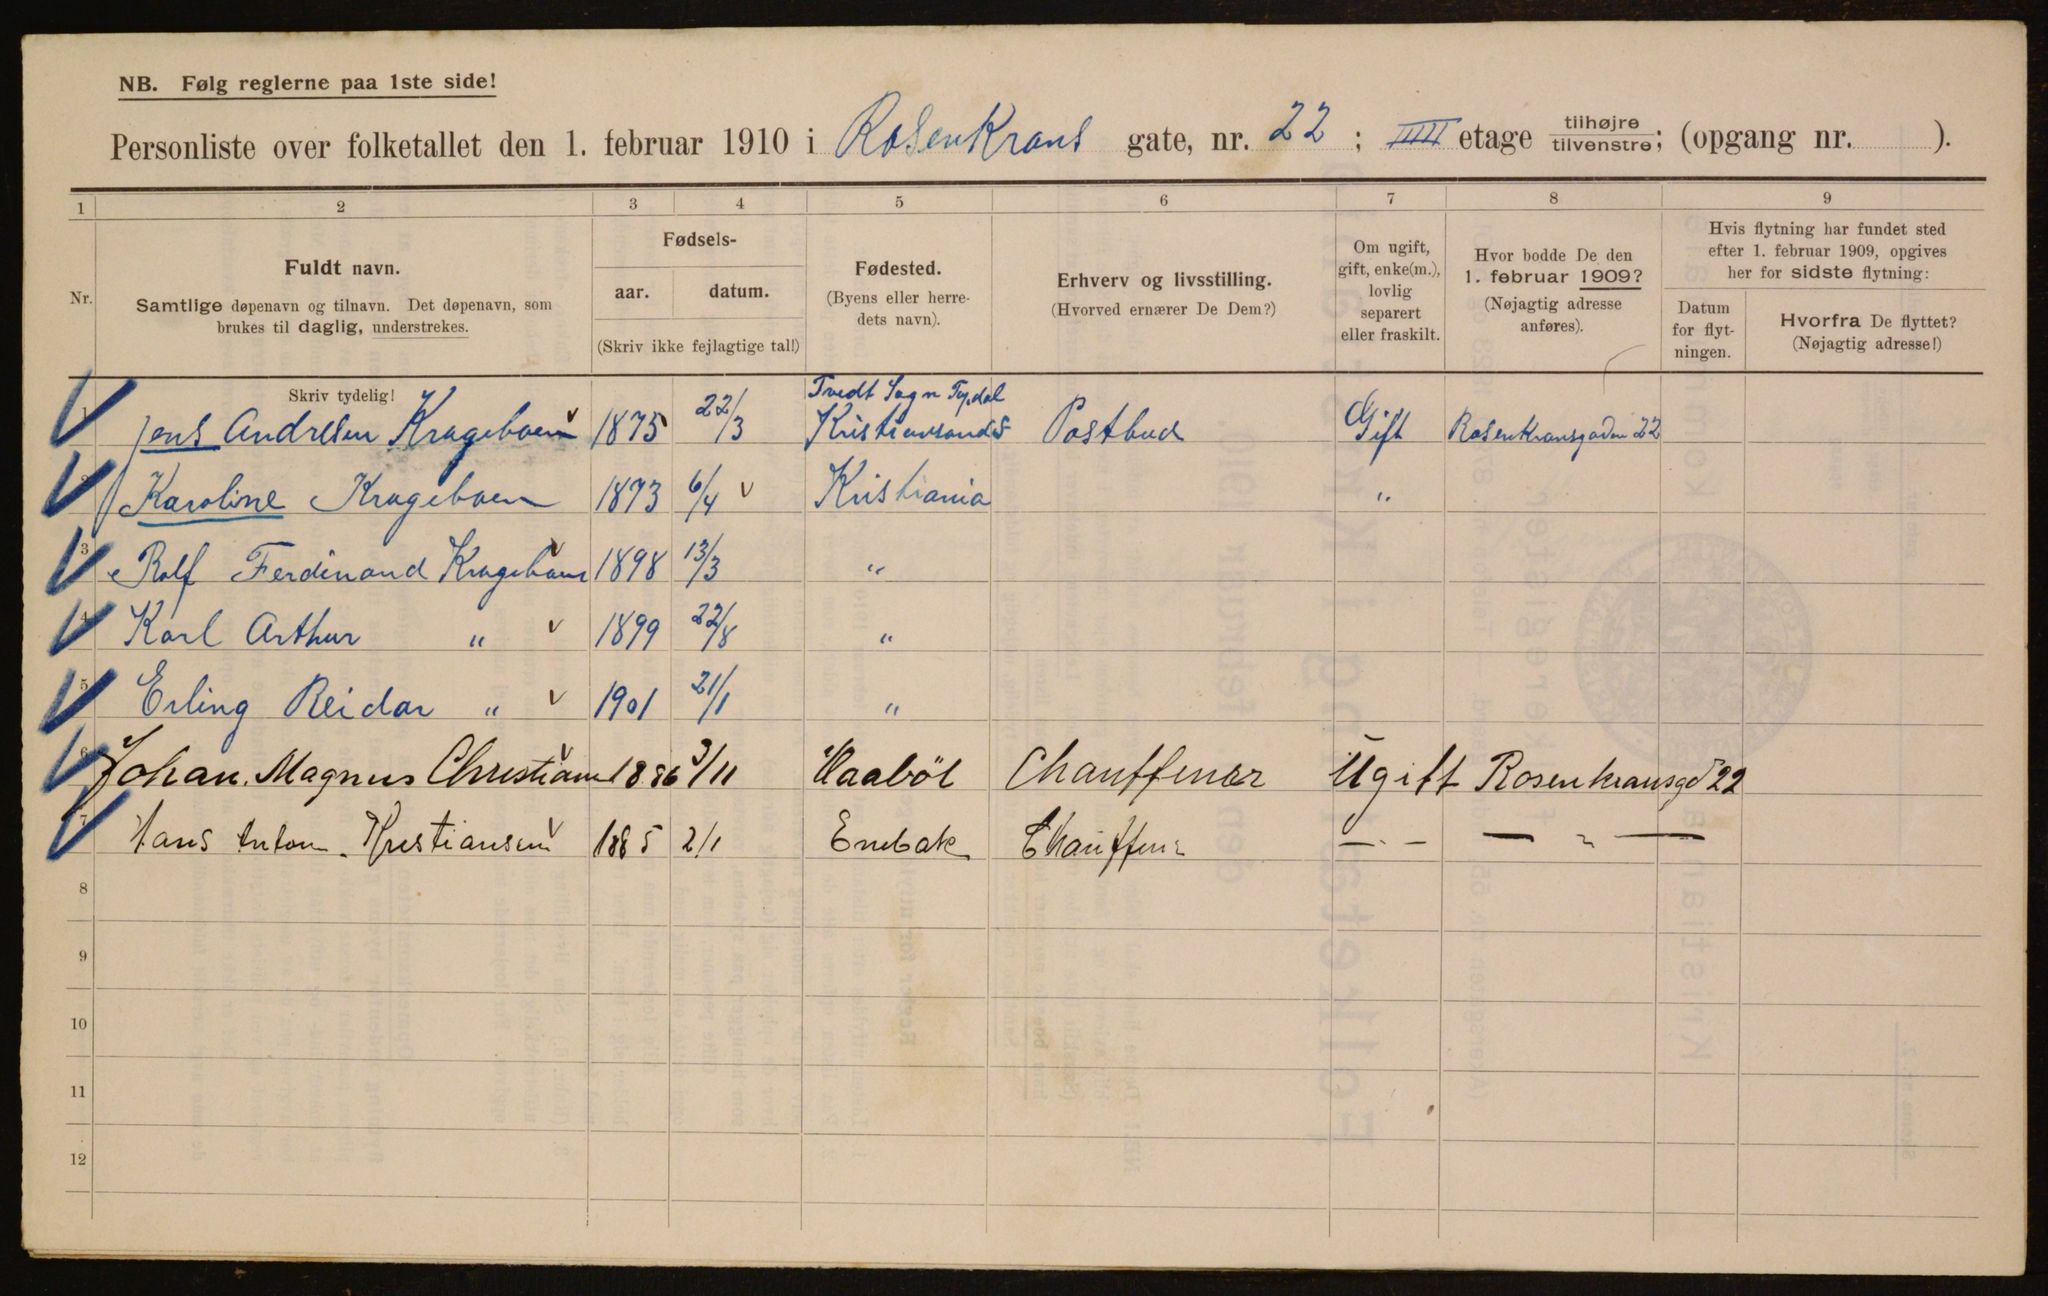 NB. Følg reglerne paa 1ste side!
Personliste over folketallet den 1. februar 1910 i Rosenkrans gate, nr. 22 ; IIIII etage tilhøjre/tilvenstre; (opgang nr. ).
1 2 3 4 5 6 7 8 9
Nr.
Fuldt navn.
Samtlige døpenavn og tilnavn. Det døpenavn, som
brukes til daglig, understrekes.
Fødsels-
aar. datum.
(Skriv ikke fejlagtige tal!)
Fødested.
(Byens eller herre-
dets navn).
Erhverv og livsstilling.
(Hvorved ernærer De Dem?)
Om ugift,
gift, enke(m.),
lovlig
separert
eller fraskilt.
Hvor bodde De den
1. februar 1909?
(Nøjagtig adresse
anføres).
Hvis flytning har fundet sted
efter 1. februar 1909, opgives
her for sidste flytning:
Datum
for flyt-
ningen.
Hvorfra De flyttet?
(Nøjagtig adresse!)
Skriv tydelig!
Tvedt Sogn
1 Jens Andresen Krageboen 1875 22/3 Kristiansands Postbud Gift Rosenkransgaden 22
2 Karoline Krageboen 1873 6/4 Kristiania "
3 Rolf Ferdinand Krageboen 1898 13/3 "
4 Karl Arthur " 1899 22/8 "
5 Erling Reidar " 1901 21/1 "
6 Johan Magnus Christians 1886 3/11 Haaböl Chauffeuer Ugift Rosenkransgd 22
7 Hans Anton Kristiansen 1885 2/1 Enebak Chauffeur — " — — " —
8
9
10
11
12